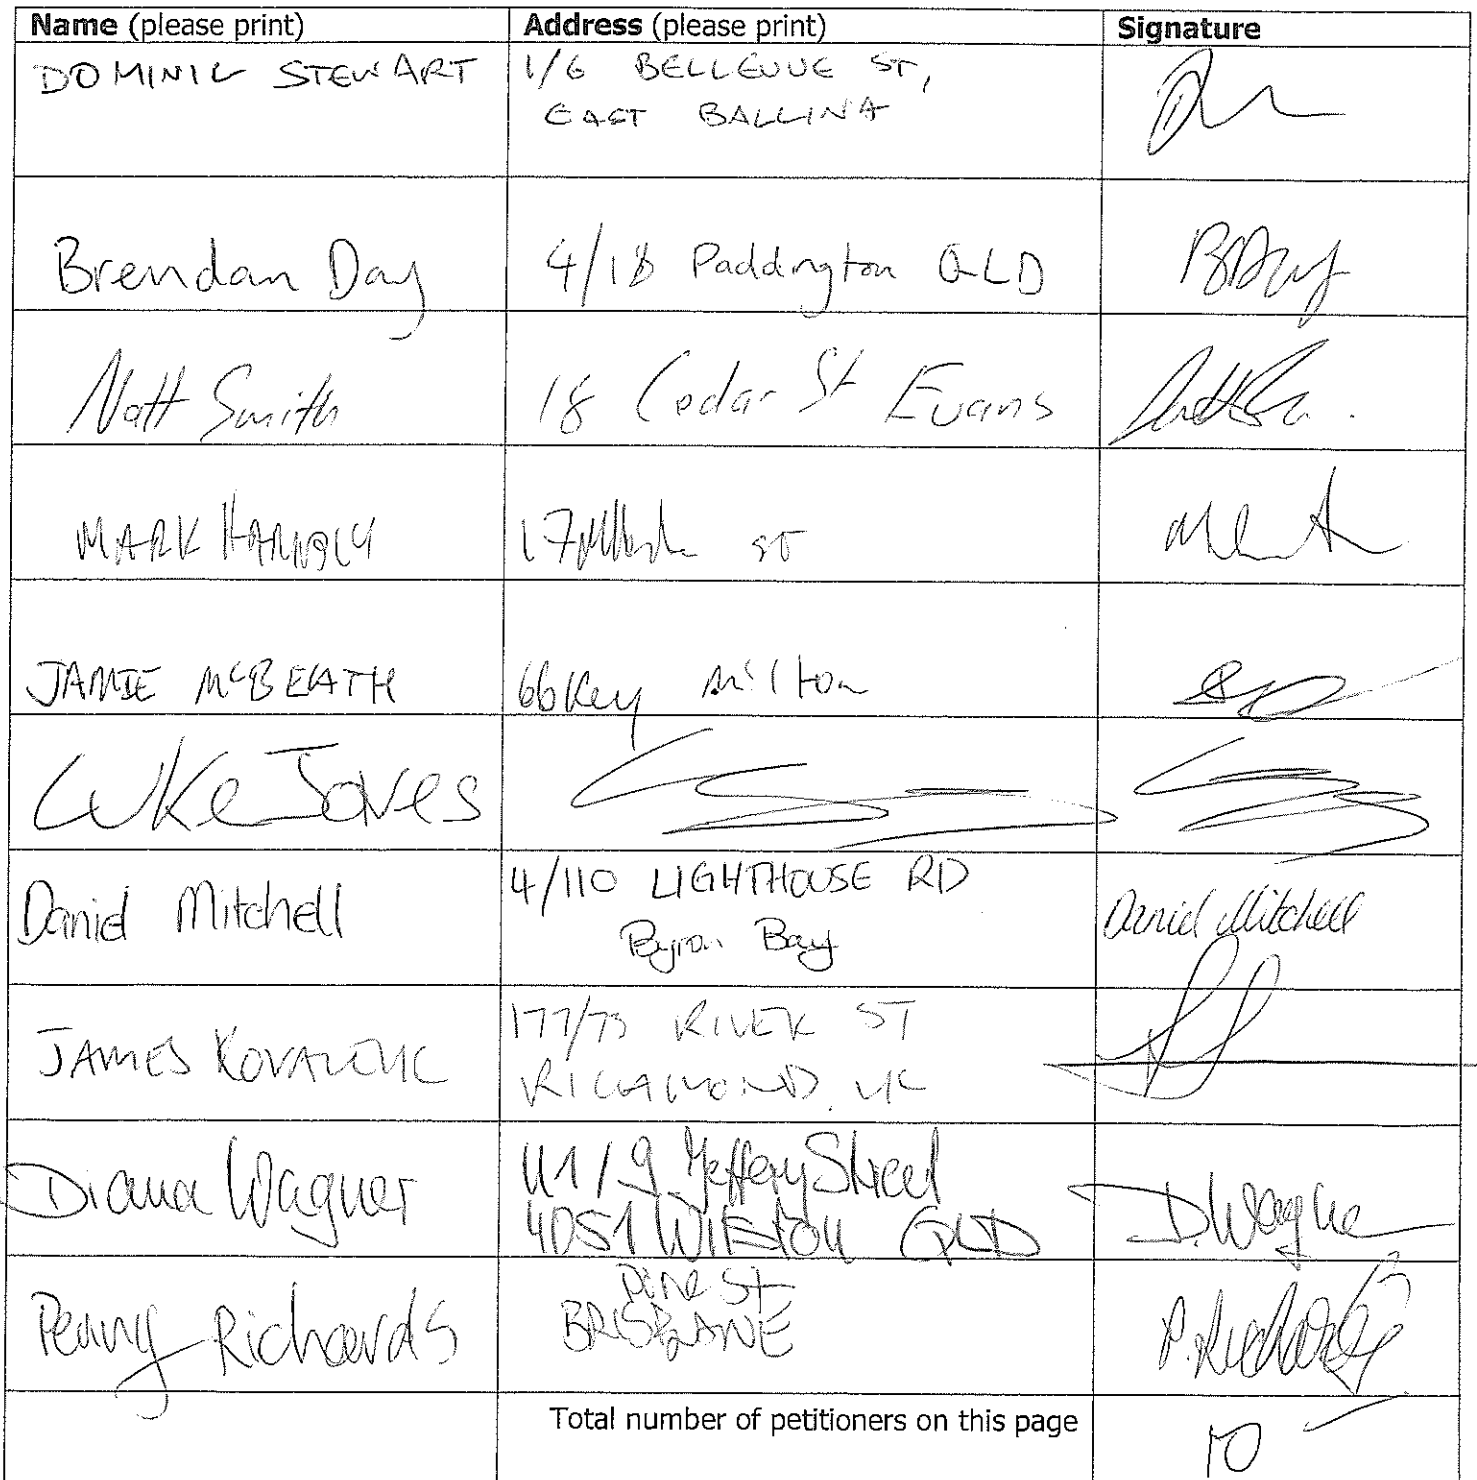 Name (please print) Address (please print) Signature
DOMINIC STEWART 1/6 BELLEVUE ST,
EAST BALLINA
Brendan Day 4/18 Paddington QLD BDay
Matt Smith 18 Cedar St Evans
MARK 17 ST
JAMIE McBEATH 66 Key Milton
Luke Jones
Daniel Mitchell 4/110 LIGHTHOUSE RD Daniel Mitchell
Byron Bay
JAMES 177/73 RIVER ST
RICHMOND
Diana Wagner U1/9 Jeffery Street D. Wagner
4051 Wilston QLD
Penny Richards Pine St P. Richards
BRISBANE
Total number of petitioners on this page 10